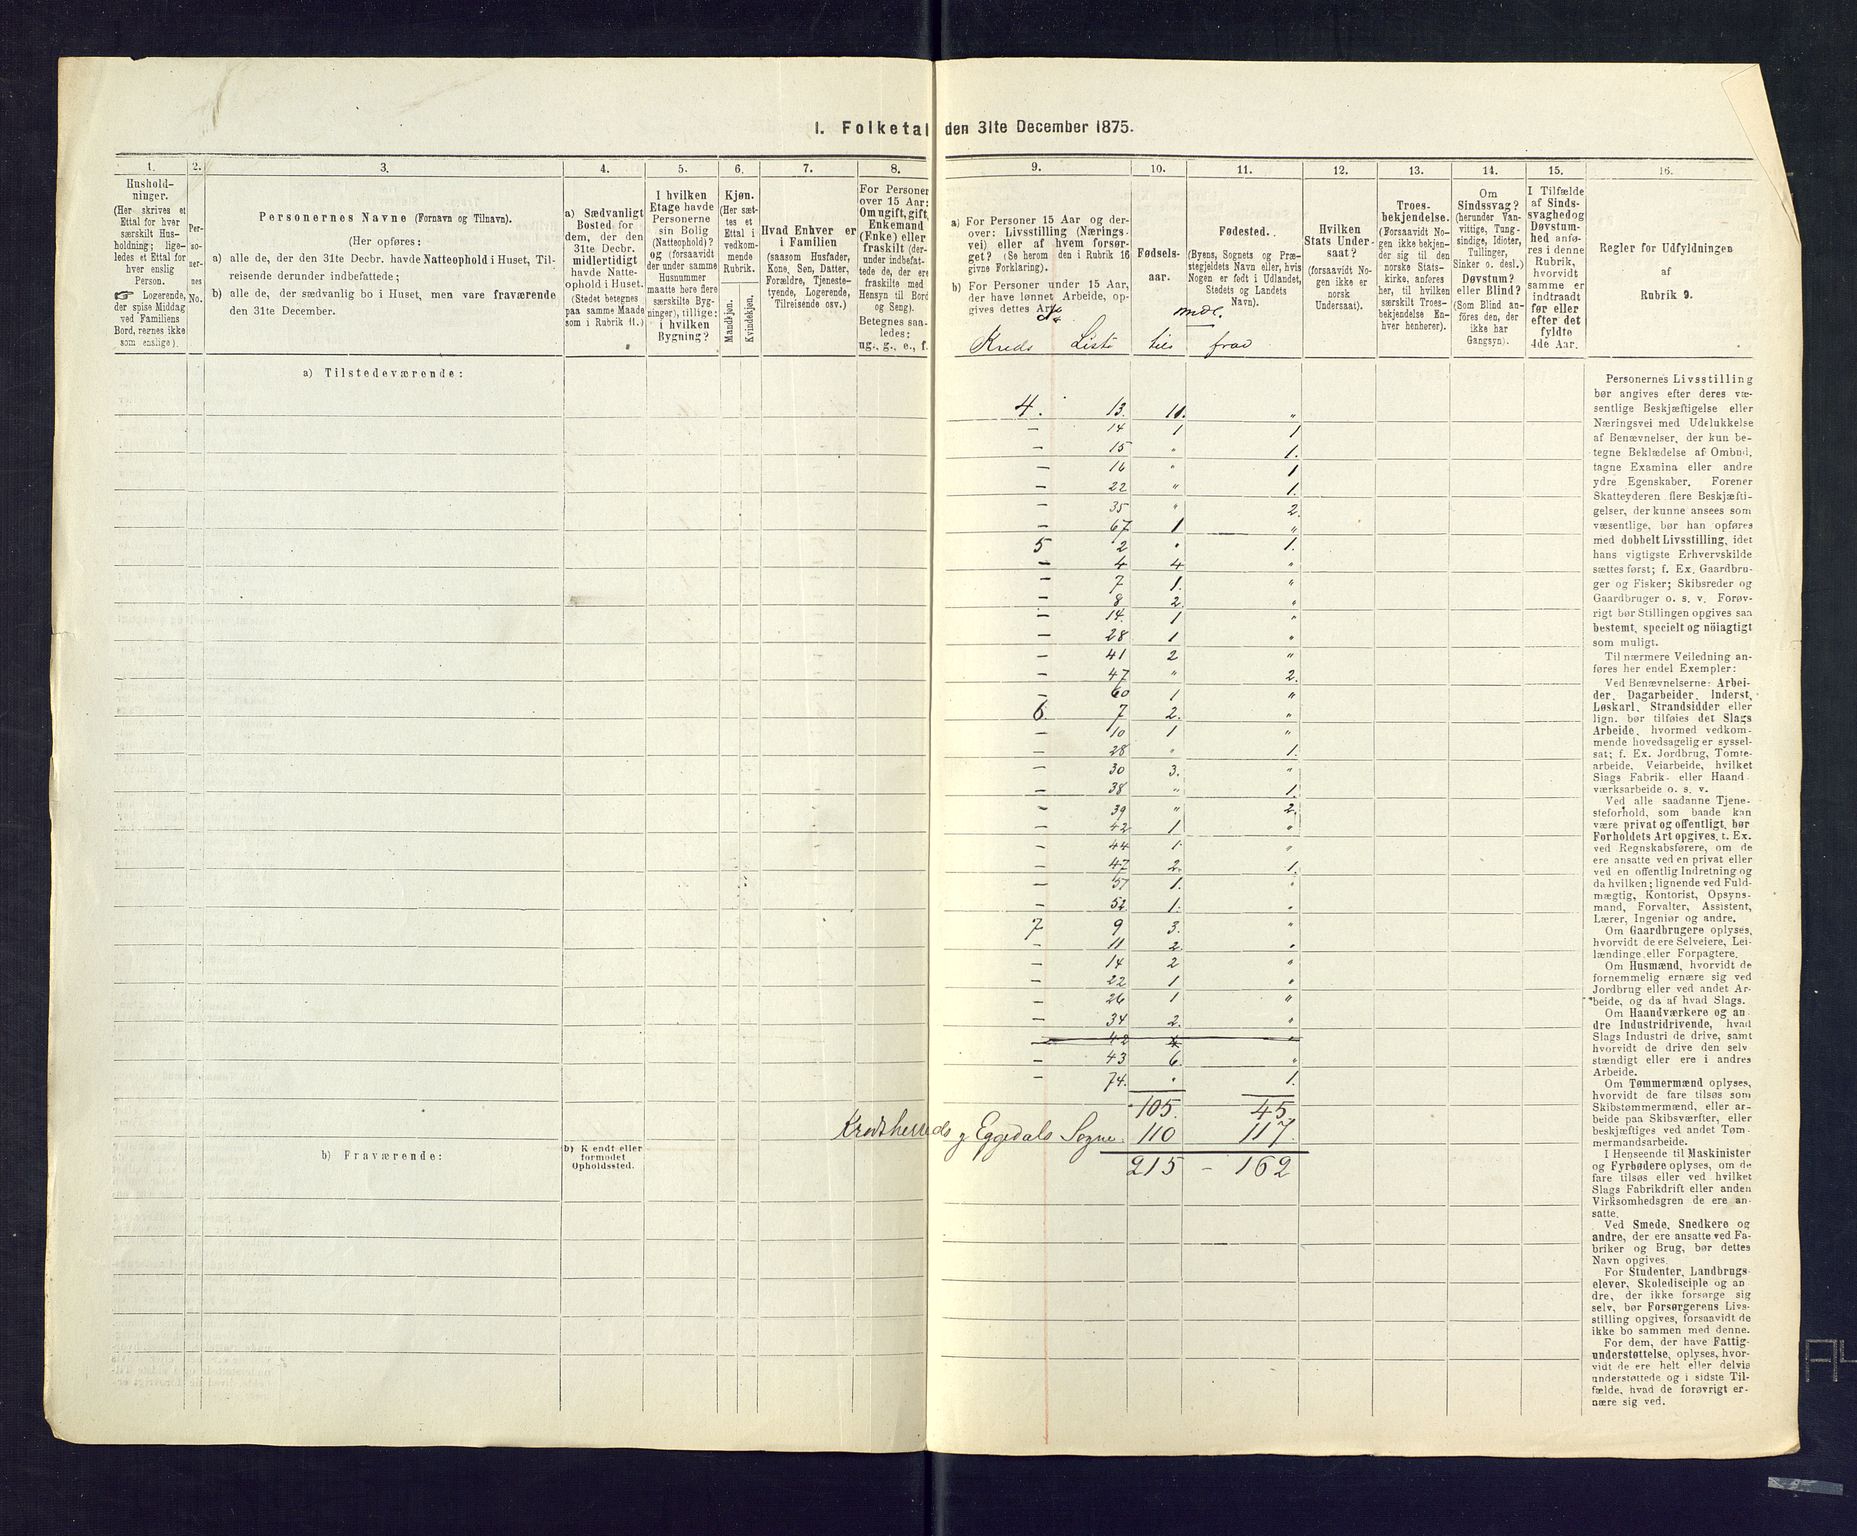 I. Folketal den 31te December 1875.
1.
Hushold-
ninger.
(Her skrives et
Ettal for hver
særskilt Hus-
holdning; lige-
ledes et Ettal for
hver enslig
Person.
☞ Logerende,
der spise Middag
ved Familiens
Bord, regnes ikke
som enslige).
2.
Per-
so-
ner-
nes
No.
3.
Personernes Navne (Fornavn og Tilnavn).
(Her opføres:
a) alle de, der den 31te Decbr. havde Natteophold i Huset, Til-
reisende derunder indbefattede;
b) alle de, der sædvanlig bo i Huset, men vare fraværende
den 31te December.
4.
a) Sædvanligt
Bosted for
dem, der den
31te Decbr.
midlertidigt
havde Natte-
ophold i Huset.
(Stedet betegnes
paa samme Maade
som i Rubrik 11.)
5.
I hvilken
Etage havde
Personerne
sin Bolig
(Natteophold)?
og (forsaavidt
der under samme
Husnummer
maatte høre flere
særskilte Byg-
ninger), tillige:
i hvilken
Bygning?
6.
Kjøn.
(Her sæt-
tes et
Ettal i
vedkom-
mende
Rubrik.
Mandkjøn.
Kvindekjøn.
7.
Hvad Enhver er
i Familien
(saasom Husfader,
Kone, Søn, Datter,
Forældre, Tjeneste-
tyende, Logerende,
Tilreisende osv.)
8.
For Personer
over 15 Aar:
Om ugift, gift,
Enkemand
(Enke) eller
fraskilt (der-
under indbefat-
tede de, der ere
fraskilte med
Hensyn til Bord
og Seng).
Betegnes saa-
ledes:
ug., g., e., f.
9.
a) For Personer 15 Aar og der-
over: Livsstilling (Nærings-
vei) eller af hvem forsør-
get? (Se herom den i Rubrik 16
givne Forklaring).
b) For Personer under 15 Aar,
der have lønnet Arbeide, op-
gives dettes Art.
10.
Fødsels-
aar.
11.
Fødested.
(Byens, Sognets og Præ-
stegjeldets Navn eller, hvis
Nogen er født i Udlandet,
Stedets og Landets
Navn).
12.
Hvilken
Stats Under-
saat?
(forsaavidt No-
gen ikke er
norsk
Undersaat).
13.
Troes-
bekjendelse.
(Forsaavidt No-
gen ikke bekjen-
der sig til den
norske Stats-
kirke, anføres
her, til hvilken
særskilt Troes-
bekjendelse En-
hver henhører).
14.
Om
Sindssvag?
(herunder Van-
vittige, Tung-
sindige, Idioter,
Tullinger,
Sinker o. desl.)
Døvstum?
eller Blind?
(Som Blind an-
føres den, der
ikke har
Gangsyn).
15.
I Tilfælde
af Sinds-
svaghed og
Døvstum-
hed anfø-
res i denne
Rubrik,
hvorvidt
samme er
indtraadt
før eller
efter det
fyldte
4de Aar.
16.
Regler for Udfyldningen
af
Rubrik 9.
Kreds Liste til fra
a) Tilstedeværende:
4. 13. 11. "
— 14 1 1
— 15 " 1.
— 16 " 1
— 22 " 1.
— 35 " 2.
— 67 1 "
5 2 " 1.
— 4 4 "
— 7 1. "
— 8 2. "
— 14. 1 "
— 28 1 "
— 41 2 "
— 47 " 2.
— 60 1 "
6. 7 2. "
— 10 1 "
— 28 " 1.
— 30 3. "
— 38 " 1.
— 39 " 2.
— 42 1 "
— 44 1. "
— 47 2. 1.
— 51 1. "
— 52. 1. "
7 9 3. "
— 11 2 "
— 14 2 "
— 22 1 "
— 26 1 "
— 34 2. "
— 42 "
— 43 6. "
— 74. " 1.
105. 45.
Krødsherreds g Eggedals Sogne. 110 117.
215 - 162
b) Fraværende:
b) Kjendt eller
formodet
Opholdssted.
Personernes Livsstilling
bør angives efter deres væ-
sentlige Beskjæftigelse eller
Næringsvei med Udelukkelse
af Benævnelser, der kun be-
tegne Beklædelse af Ombud,
tagne Examina eller andre
ydre Egenskaber. Forener
Skatteyderen flere Beskjæfti-
gelser, der kunne ansees som
væsentlige, bør han opføres
med dobbelt Livsstilling, idet
hans vigtigste Erhvervskilde
sættes først; f. Ex. Gaardbru-
ger og Fisker; Skibsreder og
Gaardbruger o. s. v. Forøv-
rigt bør Stillingen opgives saa
bestemt, specielt og nöiagtigt
som muligt.
Til nærmere Veiledning an-
føres her endel Exempler:
Ved Benævnelserne: Arbei-
der, Dagarbeider, Inderst,
Løskarl, Strandsidder eller
lign. bør tilføies det Slags
Arbeide, hvormed vedkom-
mende hovedsagelig er syssel-
sat; f. Ex. Jordbrug, Tomte-
arbeide, Veiarbeide, hvilket
Slags Fabrik- eller Haand-
værksarbeide o. s. v.
Ved alle saadanne Tjene-
steforhold, som baade kan
være privat og offentligt, bør
Forholdets Art opgives, t. Ex.
ved Regnskabsførere, om de
ere ansatte ved en privat eller
ved en offentlig Indretning og
da hvilken; lignende ved Fuld-
mægtig, Kontorist, Opsyns-
mand, Forvalter, Assistent,
Lærer, Ingeniør og andre.
Om Gaardbrugere oplyses,
hvorvidt de ere Selveiere, Lei-
lændinge eller Forpagtere.
Om Husmænd, hvorvidt de
fornemmelig ernære sig ved
Jordbrug eller ved andet Ar-
beide, og da af hvad Slags.
Om Haandværkere og an-
dre Industridrivende, hvad
Slags Industri de drive, samt
hvorvidt de drive den selv
stændigt eller ere i andres
Arbeide.
Om Tømmermænd oplyses,
hvorvidt de fare tilsøs som
Skibstømmermænd, eller ar-
beide paa Skibsværfter, eller
beskjæftiges ved andet Tøm-
mermandsarbeide.
I Henseende til Maskinister
og Fyrbødere oplyses, om de
fare tilsøs eller ved hvilket
Slags Fabrikdrift eller anden
Virksomhedsgren de ere an-
satte.
Ved Smede, Snedkere og
andre, der ere ansatte ved Fa-
briker og Brug, bør dettes
Navn opgives.
For Studenter, Landbrugs-
elever, Skoledisciple og an-
dre, der ikke forsørge sig
selv, bør Forsørgerens Livs-
stilling opgives, forsaavidt de
ikke bo sammen med denne.
For dem, der have Fattig-
understøttelse, oplyses, hvor-
vidt de ere helt eller delvis
understøttede og i sidste Til-
fælde, hvad de forøvrigt er-
nære sig ved.